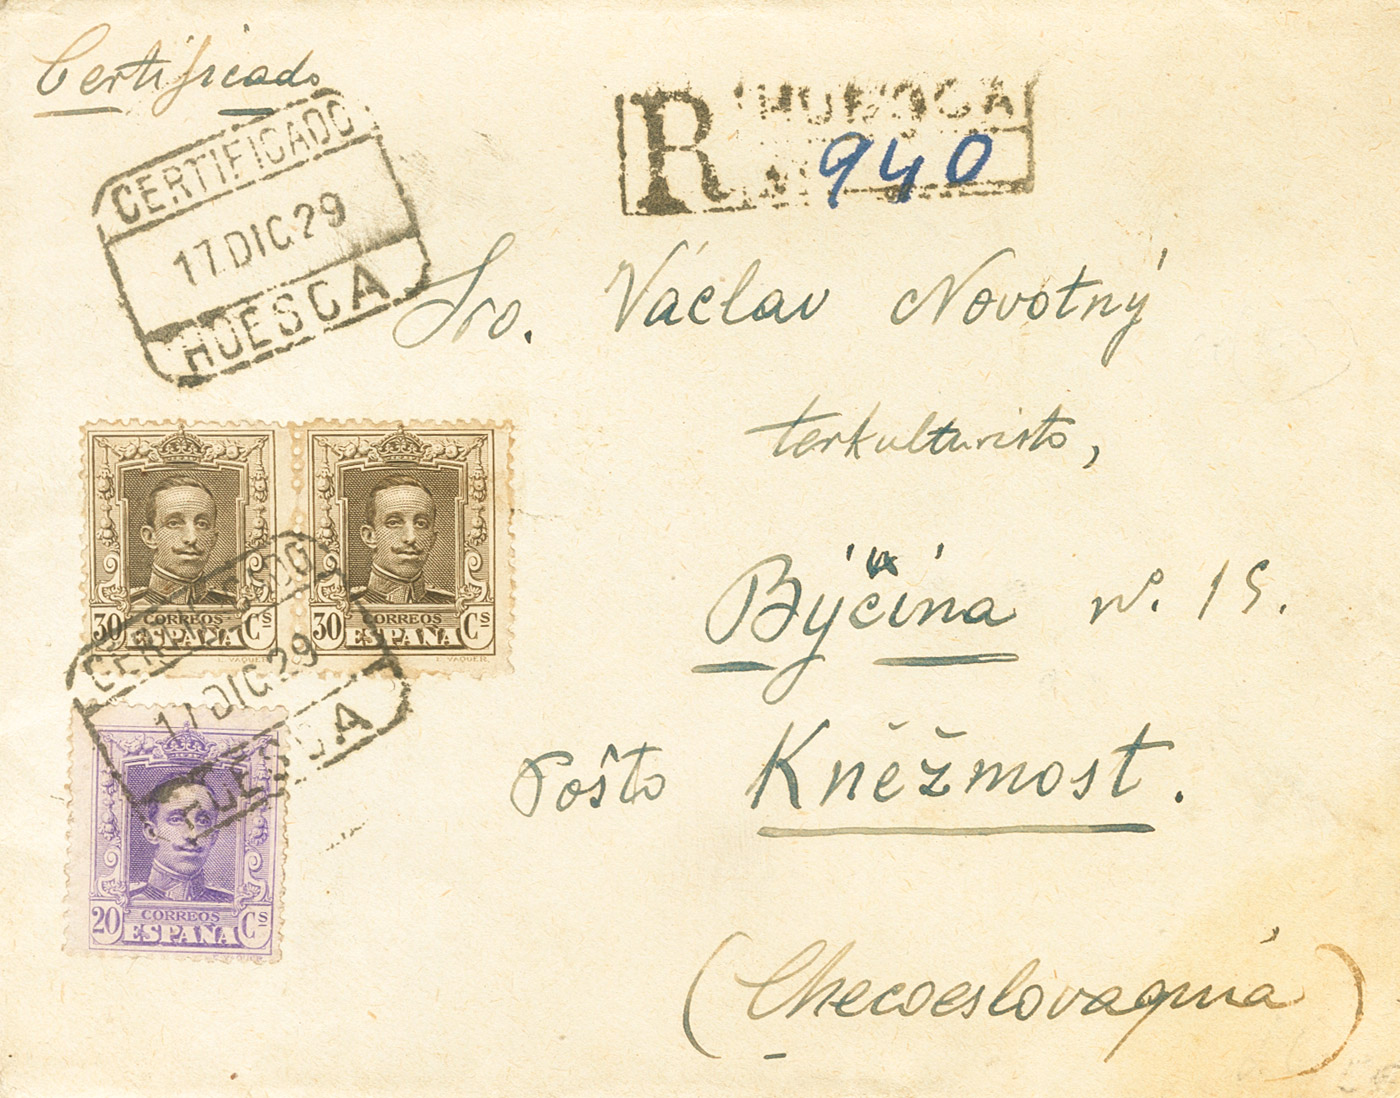 Certificado
CERTIFICADO
17 DIC 29
HUESCA
R HUESCA
940
Sro. Václav Novotný
terkulturisto,
Býčina nº. 15.
Poŝto Kněžmost.
(Checoeslovaquia)
30 CORREOS Cs
ESPAÑA
E. VAQUER.
30 CORREOS Cs
ESPAÑA
E. VAQUER.
CERTIFICADO
17 DIC 29
HUESCA
20 CORREOS Cs
ESPAÑA
E. VAQUER